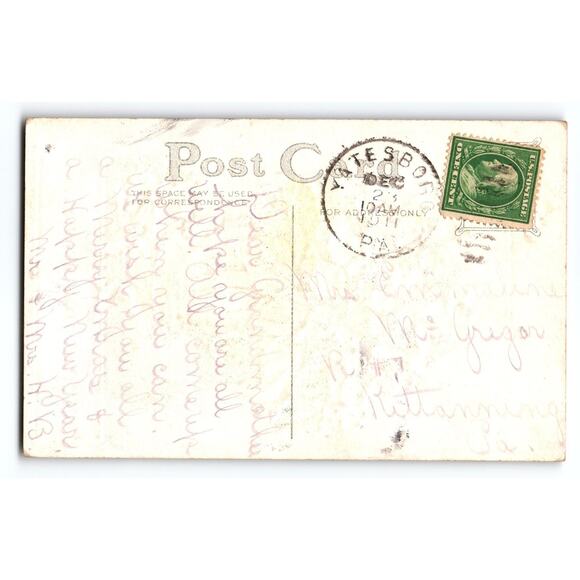 Post Card
THIS SPACE MAY BE USED
FOR CORRESPONDENCE
FOR ADDRESS ONLY
YATESBORO
DEC
23
10AM
1911
PA.
U.S. POSTAGE
ONE CENT
Dear Grandmother
hope you are all
well. All come up
when you can.
I wish you all
a Merry Xmas &
a Happy New Year
Mr & Mrs. H.B
Mrs Emmaline
Mc Gregor
R #4
Kittanning
Pa.